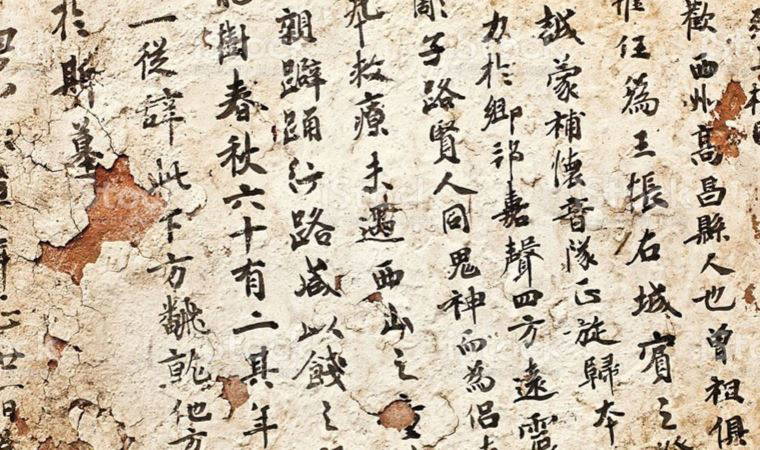 歡西州高昌縣人也曾祖俱
任為王帳右城賓之
誠蒙補懷音隊正旋歸本
力於鄉邦嘉聲四方遠震
子路賢人同鬼神而為侶
救療未遇西山之
親躃踊行路咸以餞之
樹春秋六十有二其年
一從辭此下方飜就他方
於斯墓
廿一日